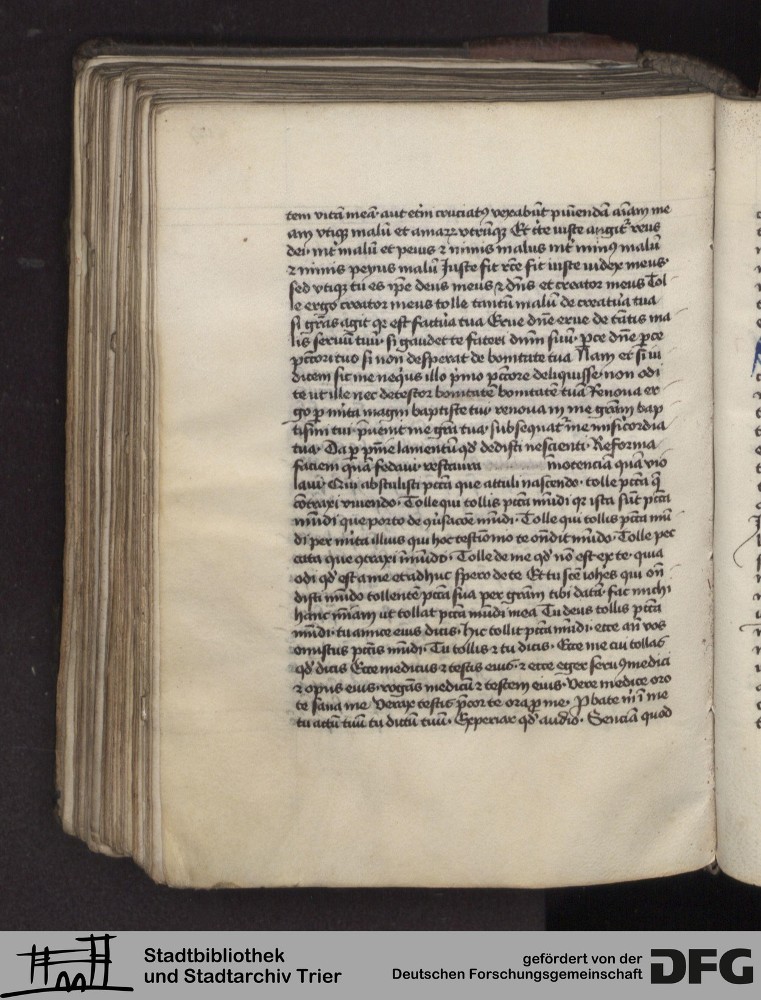 tem vitā meā· aut etī cruciatꝰ vexabūt puniendā aīam me
am vtiqꝫ malū et amarū vtrūqꝫ Et ite iuste
dei· malū et peius ⁊ nimis malus minꝰ malū
⁊ nimis peyus malū Juste fit rc̄e fit iuste iudex meus·
sed vtiqꝫ tu es ip̄e deus meus ⁊ dn̄s et creator meus Tol
le ergo creator meus tolle tantū malū de creatura tua
si gr̄as agit qr est factura tua Erue dn̄e erue de tātis ma
lis seruū tuū· si gaudet te fateri dnm̄ suū· ꝑce dn̄e ꝑce
pctōri tuo si non desperat de bonitate tua Nam et si iu
dicem sic me neqꝰ illo p̄mo pctōre deliquisse· non odi
te ut ille nec detestor bonitatē bonitatē tuā Renoua er
go ꝑ mīta magni baptiste tui· renoua in me grām bap
tismi tui· p̄ueniat me grā tua· subsequatur me misicordia
tua· Da ꝑ pn̄ie lamentū qd̄ dedisti nescienti· Reforma
faciem quā fedaui· restaura innocencia quā vio
laui· Qui abstulisti pctā que attuli nascendo· tolle pctā q̄
cōtraxi viuendo· Tolle qui tollis pctā mūdi qr ista sūt pctā
mūdi que porto de ꝯusacōe mūdi· Tolle qui tollis pctā mū
di per mīta illius qui hoc testīomo te ondit mūdo· Tolle pec
cata que ꝯtraxi mūdo· Tolle de me qd̄ nō est ex te· quia
odi qd̄ est a me et adhuc spero de te Et tu sc̄e iohes qui on̄
disti mūdo tollentē pctā sua per grām tibi datā· fac michi
hanc mīam ut tollat pctā mūdi mea Tu deus tollis pctā
mūdi· tu amice eius dicis· hic tollit pctā mūdi· ecce an̄ vos
onustus pctis mūdi· Tu tollis ⁊ tu dicis· Ecce me cui tollas
qd̄ dicis Ecce medicus ⁊ testis eius· ⁊ ecce eger seruꝰ medici
⁊ opus eius· rogās medicū ⁊ testem eius· Vere medice oro
te sana me Verax testis p̄cor te ora ꝑ me· Pbate m̄ ī me
tu actū tuū tu dictū tuū· Experiar qd̄ audio· Senciā quod
Stadtbibliothek
und Stadtarchiv Trier
gefördert von der
Deutschen Forschungsgemeinschaft
DFG